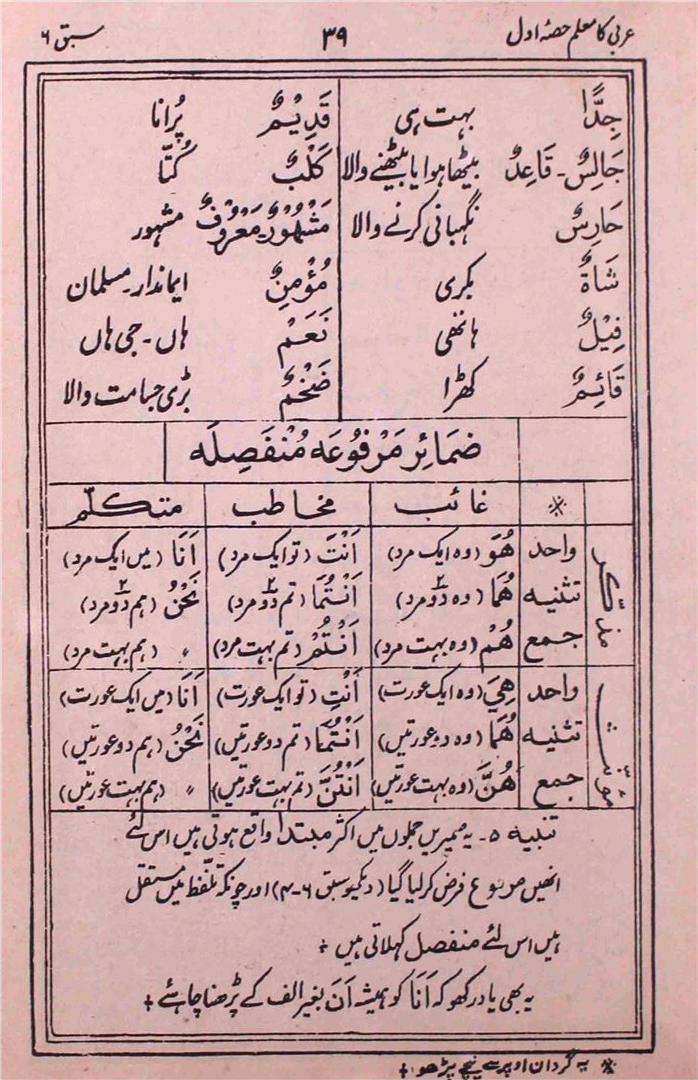 عربی کا معلم حصۂ اول ۳۹ سبق ۶
جِدًّا بہت ہی قَدِیْمٌ پُرانا
جَالِسٌ۔ قَاعِدٌ بیٹھا ہوا یا بیٹھنے والا کَلْبٌ کُتّا
حَارِسٌ نگہبانی کرنے والا مَشْهُوْرٌ۔ مَعْرُوْفٌ مشہور
شَاۃٌ بکری مُؤْمِنٌ ایماندار۔ مسلمان
فِیْلٌ ہاتھی نَعَمْ ہاں۔ جی ہاں
قَائِمٌ کھڑا ضَخْمٌ بڑی جسامت والا
ضمَائِر مَرْفُوْعَه مُنْفَصِلَه
※ غائب مخاطب متکلّم
مذکّر واحد هُوَ (وہ ایک مرد) اَنْتَ (تو ایک مرد) اَنَا (میں ایک مرد)
تثنیه هُمَا (وہ دو۲ مرد) اَنْتُمَا (تم دو۲ مرد) نَحْنُ (ہم دو۲ مرد)
جمع هُمْ (وہ بہت مرد) اَنْتُمْ (تم بہت مرد) 〃 (ہم بہت مرد)
مؤنّث واحد هِیَ (وہ ایک عورت) اَنْتِ (تو ایک عورت) اَنَا (میں ایک عورت)
تثنیه هُمَا (وہ دو عورتیں) اَنْتُمَا (تم دو عورتیں) نَحْنُ (ہم دو عورتیں)
جمع هُنَّ (وہ بہت عورتیں) اَنْتُنَّ (تم بہت عورتیں) 〃 (ہم بہت عورتیں)
تنبیه ۵۔ یہ ضمیریں جملوں میں اکثر مبتدا واقع ہوتی ہیں اس لئے
انھیں مرفوع فرض کرلیا گیا (دیکھو سبق ۶-۴) اور چونکہ تلفّظ میں مستقل
ہیں اس لئے منفصل کہلاتی ہیں ÷
یہ بھی یاد رکھو کہ اَنَا کو ہمیشہ اَنَ بغیر الف کے پڑھنا چاہئے ÷
※ یہ گردان اوپر سے نیچے پڑھو ÷